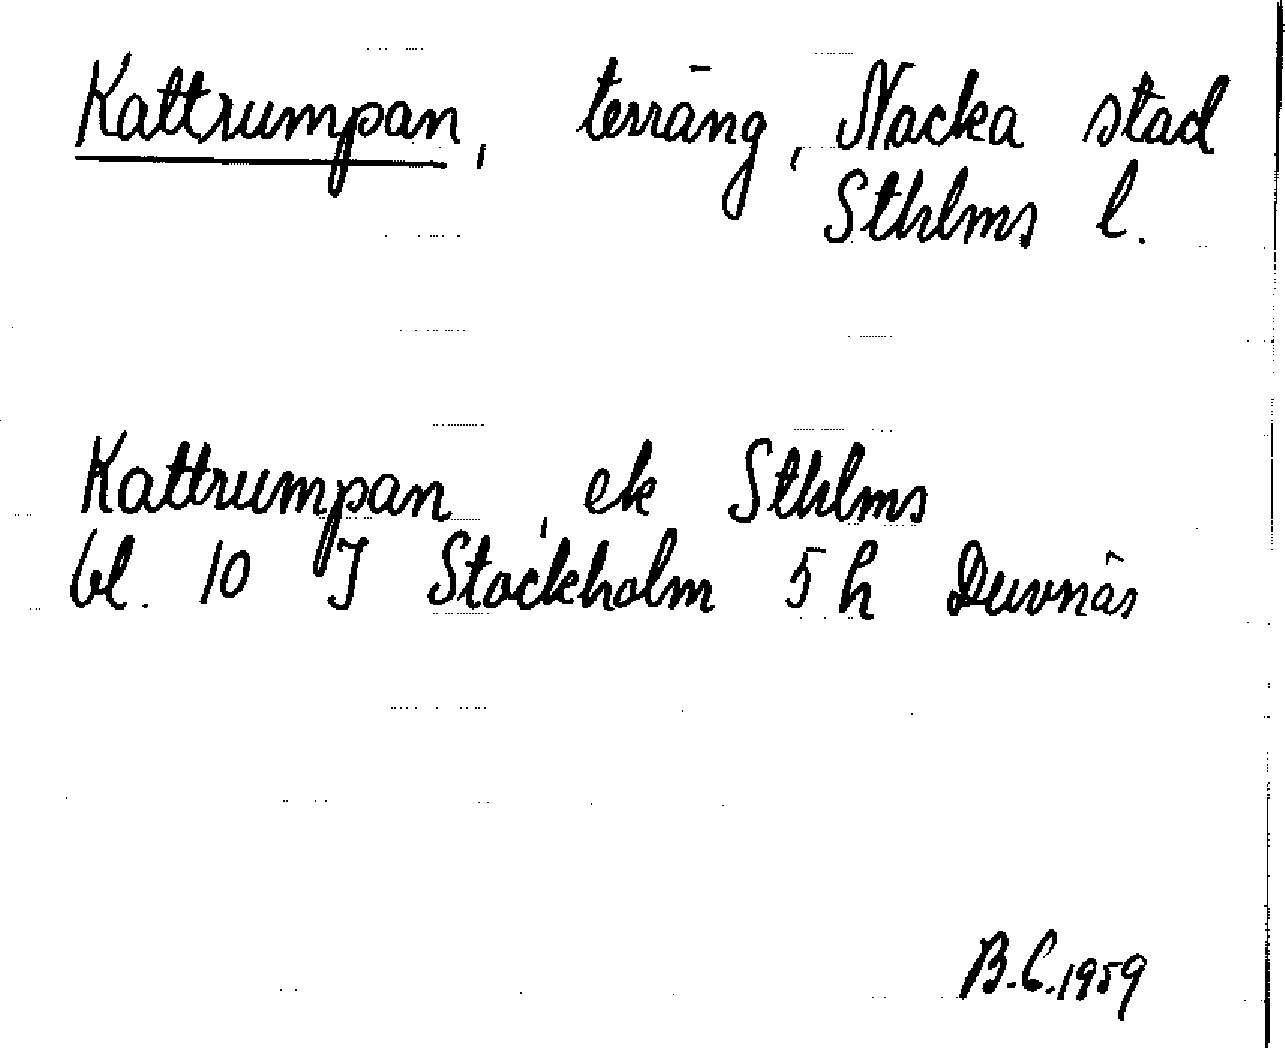 Kattrumpan, terräng, Nacka stad
Sthlms l.
Kattrumpan, ek Sthlms
bl. 10 J Stockholm 5 h Duvnäs
B.C. 1959